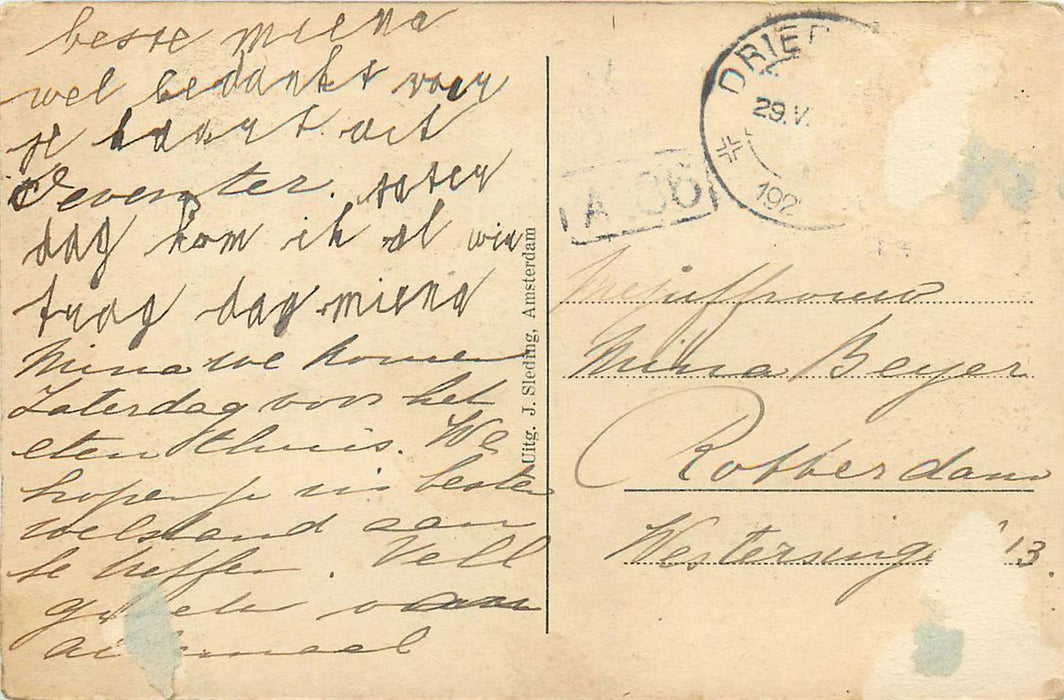 beste miena
wel bedankt voor
je kaart uit
Deventer. zater
dag kom ik al wir
traag dag miena
Mina we komen
Zaterdag voor het
eten thuis. We
hopen je in besten
welstand aan
te treffen. Vell
van
allemaal
Uitg. J. Sleding, Amsterdam
DRIEB
29.V.
192
A 36
Mejuffrouw
Mina Beyer
Rotterdam
Westersingel 13.